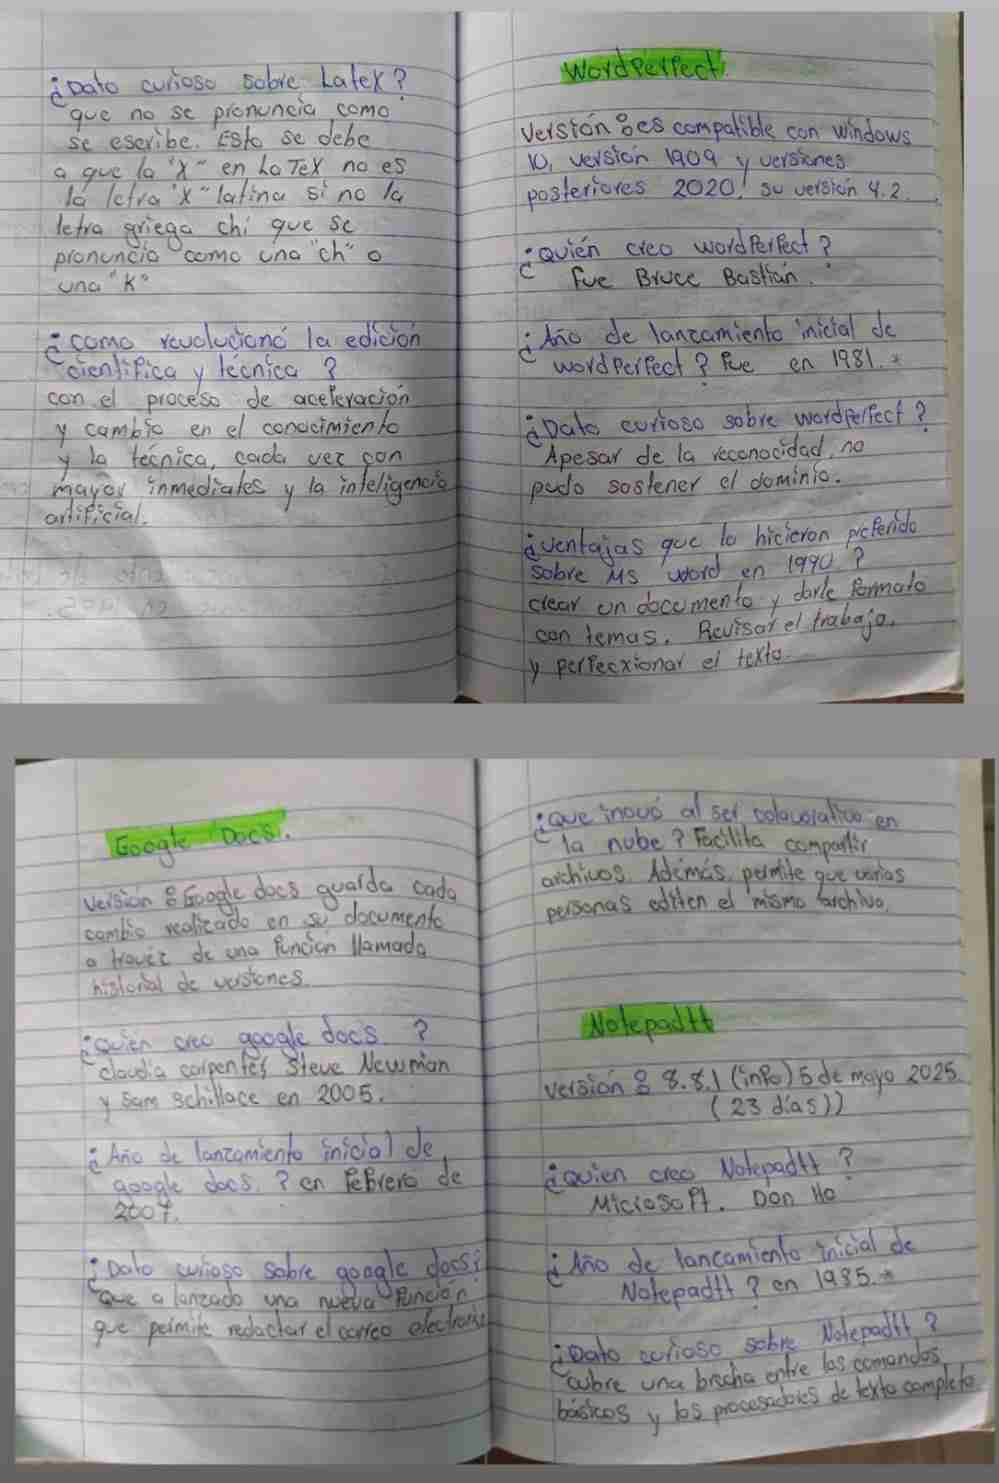 ¿Dato curioso sobre Latex?
que no se pronuncia como
se escribe. Esto se debe
a que la "X" en LaTeX no es
la letra "x" latina si no la
letra griega chi que se
pronuncia como una "ch" o
una "K"
¿como revolucionó la edición
cientifica y técnica ?
con el proceso de aceleración
y cambio en el conocimiento
y la técnica, cada vez con
mayor inmediates y la inteligencia
artificial.
WordPerfect.
Versión : es compatible con windows
10, versión 1909 y versiones
posteriores 2020, su versión 4.2.
¿quién creo wordPerfect?
Fue Bruce Bastian.
¿Año de lanzamiento inicial de
wordPerfect? Fue en 1981.*
¿Dato curioso sobre wordperfect?
Apesar de la reconocidad, no
pudo sostener el dominio.
¿ventajas que lo hicieron preferido
sobre MS word en 1990 ?
crear un documento y darle formato
con temas. Revisar el trabajo,
y perfecxionar el texto.
Google Docs.
versión : Google docs guarda cada
cambio realizado en su documento
a travéz de una función llamada
historial de versiones.
¿quien creo google docs. ?
claudia carpenter, Steve Newman
y Sam schillace en 2005.
¿Año de lanzamiento inicial de
google docs. ? en Febrero de
2007.
¿Dato curioso sobre google docs?
que a lanzado una nueva función
que permite redactar el correo electronico
¿que inovó al ser colavorativo en
la nube ? Facilita compartir
archivos. Además, permite que varias
personas editen el mismo archivo.
Notepadtt
versión : 8.8.1 (info) 5 de mayo 2025.
(23 días))
¿quien creo Notepadtt ?
Microsoft. Don Ho
¿Año de lanzamiento inicial de
Notepadtt ? en 1985.*
¿Dato curioso sobre Notepadtt ?
cubre una brecha entre los comandos
básicos y los procesadores de texto completo